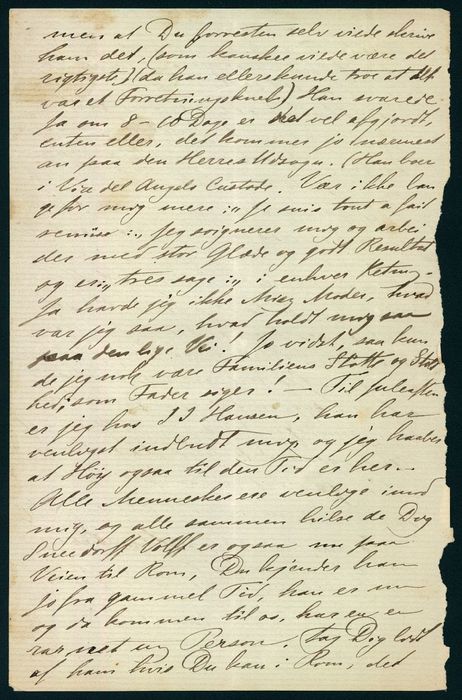 men at Du forresten selv vilde skrive
ham det, (som kanskee vilde være det
rigtigste) (da han ellers kunde troe at det
var et Forretningskneb) Han svarede
Ja om 8 - 10 Dage er det vel afgjordt,
enten eller, det kommer jo
an paa den Herres Udsagn. (Han boer
i Via del Angelo Custode. Vær ikke ban
ge for mig mere :„ Je suis tout a fait
remise :„ jeg soigneres mig og arbei
der med stor Glæde og godt Resultat
og er :„ tres sage :„ i enhver Retning –
Ja havde jeg ikke Moder, hvad
var jeg saa, hvad holdt mig saa
paa den lige Vei! Jo vidst, saa kun
de jeg nok være Familiens Støtte og Stolt
hed, som Fader siger! – Til Juleaften
er jeg hos I I Hansen, han har
venligst indbudt mig og jeg haaber
at Høy ogsaa til den Tid er her. –
Alle Mennesker ere venlige imod
mig, og alle sammen hilse de Dig
Sneedorff Wolff er ogsaa nu paa
Veien til Rom, Du kjender ham
jo fra gammel Tid, han er nu
og da kommen til os, han er en
rar net ung Person, tag Dig lidt
af ham hvis Du kan i Rom, det